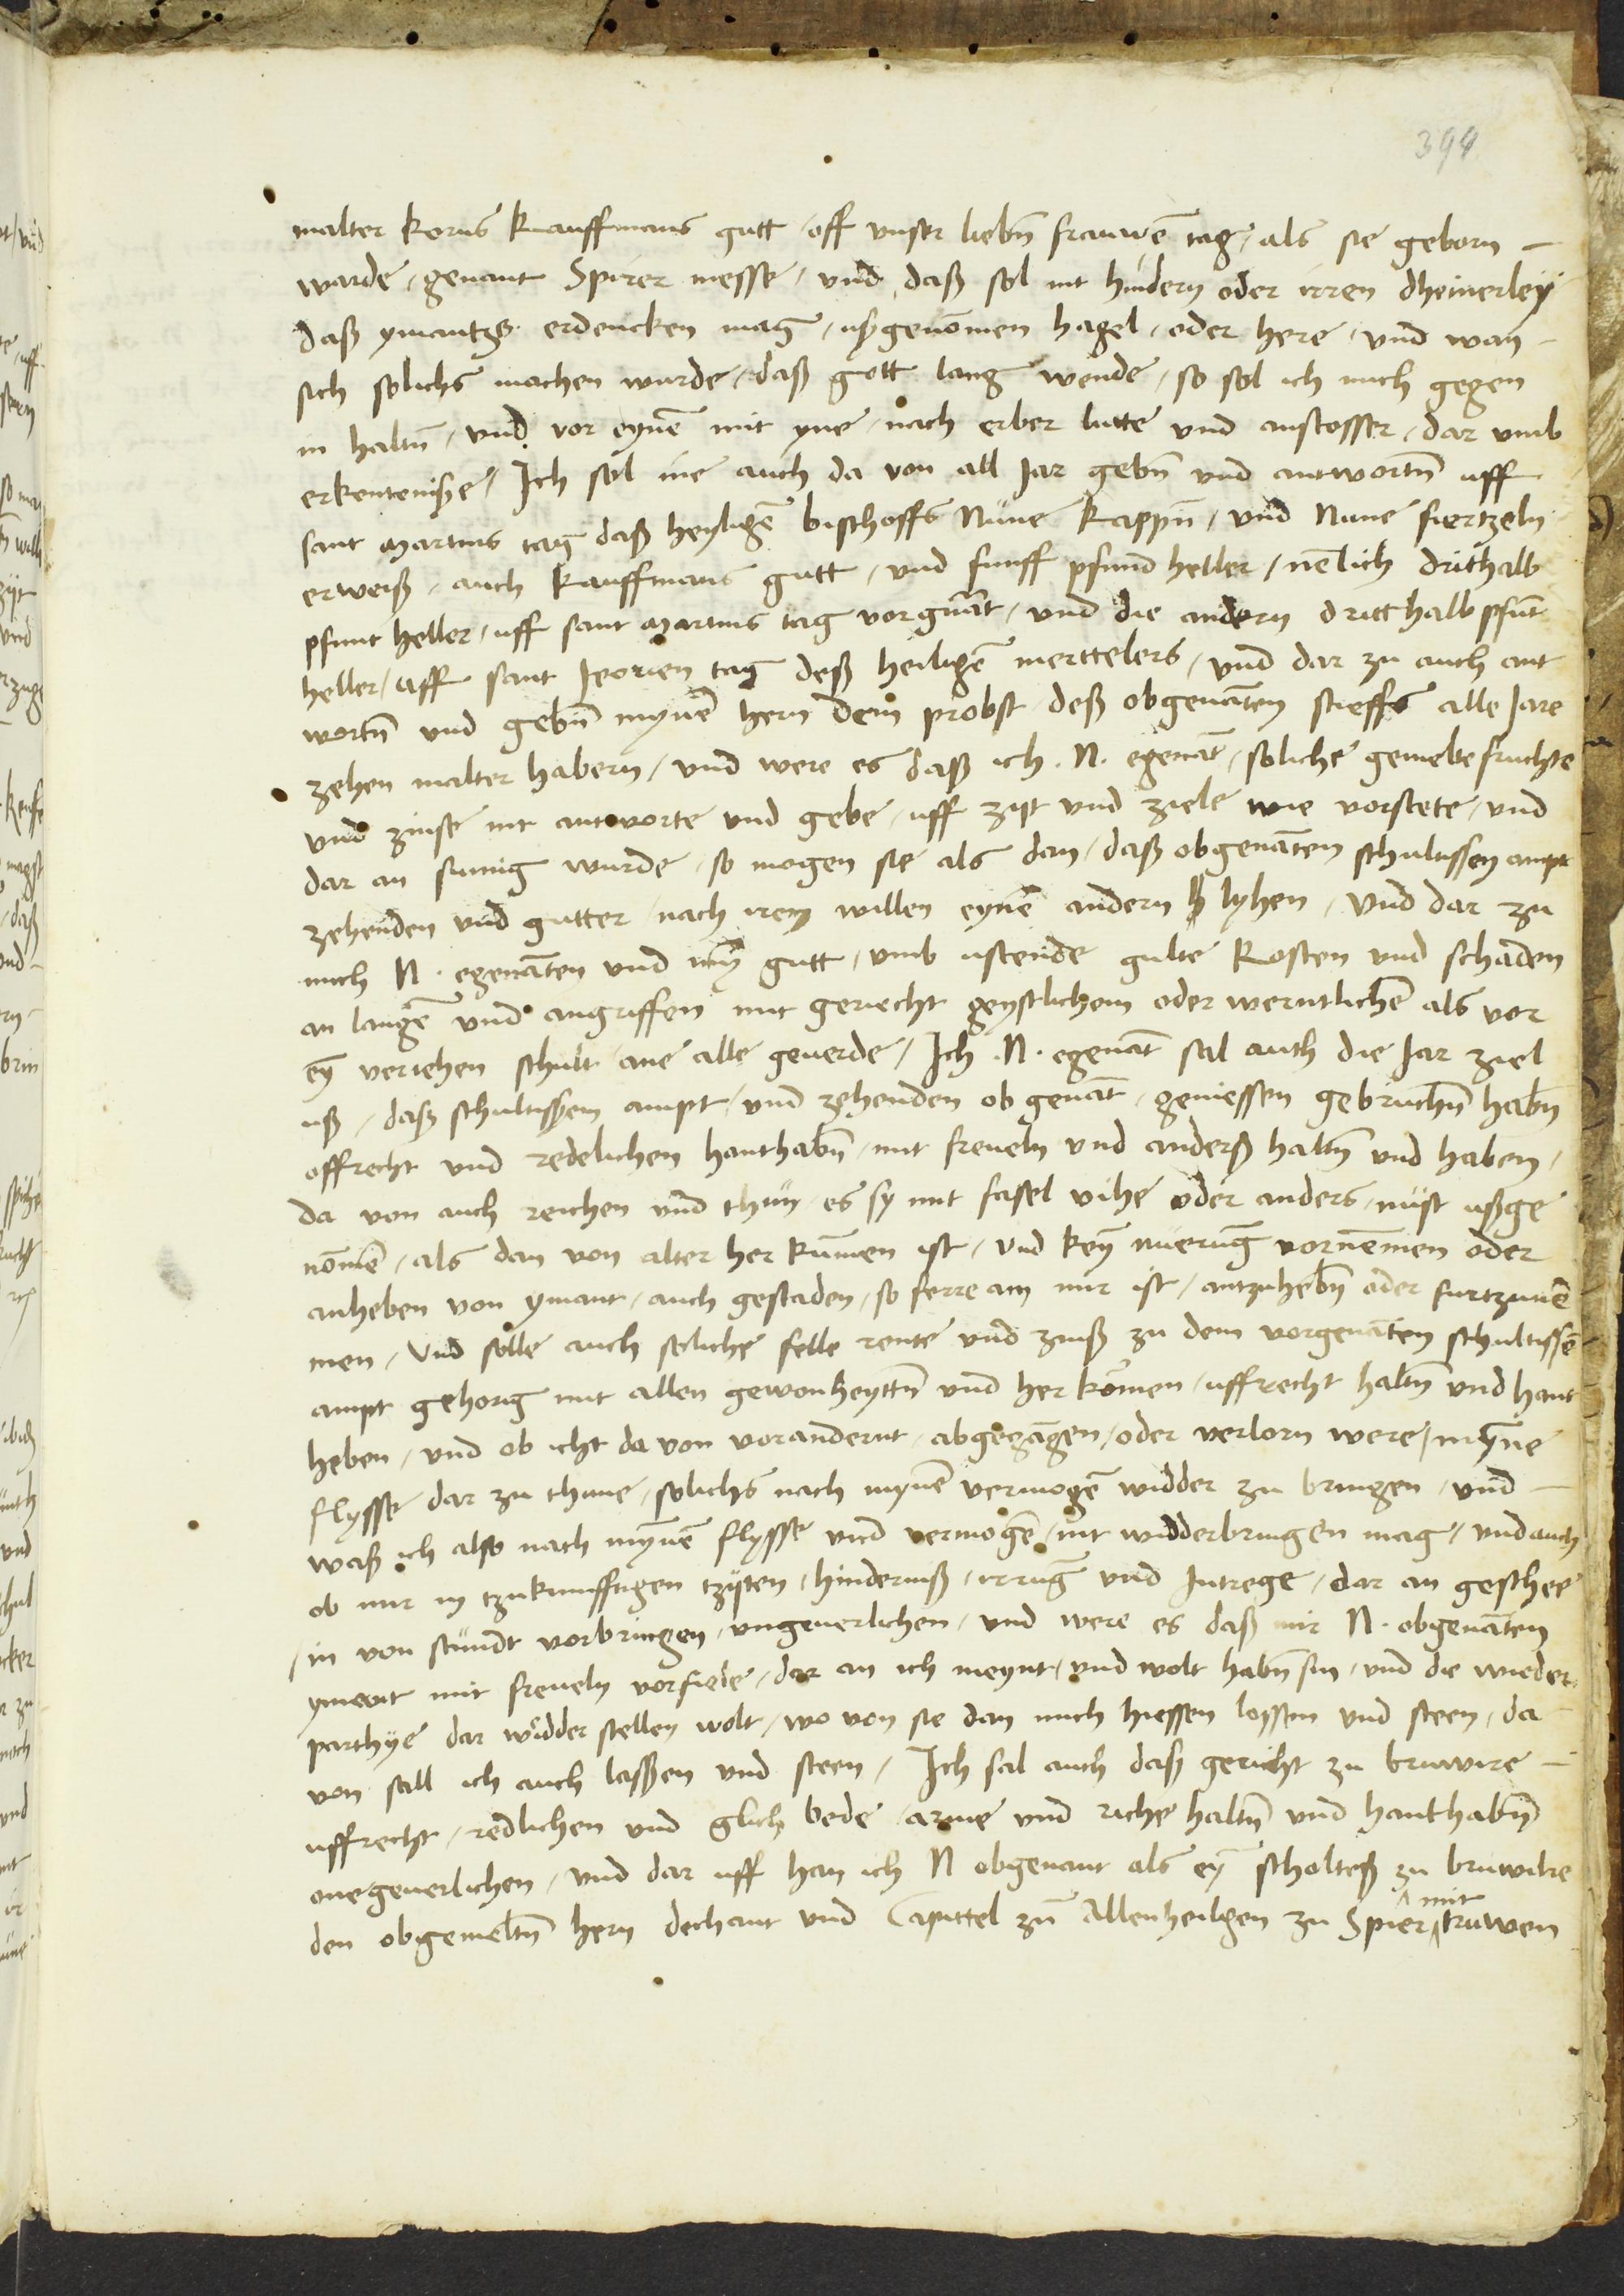 394
malter korns kauffmans gutt / off unser liebn̄ frauwē tag / als sie geborn –
warde / genant Spirer messe / und daß sol nit hindern oder irren dheinerley
daß ymantz erdencken mag / ußgenōmen hagel / oder here / und wan –
sich solichs machen wurde / daß gott lang wende / so sol ich mich gegen
in haltn̄ / und vor eynē mit yne / nach erber lutte und anstosser / dar umb
erkentenisze / Ich sol ine auch da von all Jar gebn̄ und antwortn̄ uff
sant Martins tag daß heyligē bischoffs Nüne kappn̄ / und Nune fiertzeln
erweiß / auch kauffmans gutt / und funff pfund heller / nēlich drithalb
pfunt heller / uff sant Martins tag vorgnāt / und die andern dritthalb pfūt
heller / uff sant Jeorien tag deß heiligē merttelers / und dar zu auch ant
wortn̄ und gebn̄ mynē hern dem probst deß obgenātten stieffs alle Jare
zehen malter habern / und were es daß ich .N. egenāt / soliche gemebe fruchte
und zinse nit antworte und gebe / uff zijt und ziele wie vorstete / und
dar an sumig wurde / so mogen sie als dan / daß obgenāten schultissen ampt
zehenden und gutter / nach irem willen eynē andern lyhen / Und dar zu
mich N. egenāten und mȳ gutt / umb ustende gulte kosten und schaden
an langē und angriffen mit geriecht geystlichem oder werntlichē als vor
eȳ veriehen schult ane alle geuerde / Ich .N. egenāt sal auch die Jar ziel
uß / daß schultissen ampt / und zehenden ob genāt / geniessen gebruchn̄ habn̄
offrecht und redelichen hanthabn̄ / mit freueln und anderß haltn̄ und haben /
da von auch reichen und thun / es sy mit fasel vihe oder anders / nust ußge
nōmē / als dan von alter her kūmen ist / und keȳ nuerung vornēmen oder
anheben von ymant / auch gestaden / so ferre am mir ist / antzuhebn̄ oder furtzunē
men / und solle auch soliche felle rente und zinß zu dem vorgenāten schultissē
ampt gehorig mit allen gewonheyttn̄ und her kōmen / uffrecht haltn̄ und hant
heben / und ob icht da von vorandernt / abgegangen / oder verlorn were / mȳne
flysse dar zu thune / solichs nach mynē vermogē widder zu bringen / und –
waß ich also nach mynē flysse und vermogē / nit widderbringen mag / und auch
ob mir in tzukunfftigen tzijten / hinderniß / irrung und Intrege / dar an geschee
/ in von stundt vorbringen / ungeuerlichen / und were es daß mir N. obgenāten
ymant mit freueln vorfiele / dar an ich meynt / und wolt habn̄ sin / und die wieder
parthye dar widder stellen wolt / wo von sie dan mich hiessen lossen und steen / da
von sall ich auch lasßen und steen / Ich sal auch daß gericht zu bruwire –
uffrecht / redlichen und glich bede / arme und riche haltn̄ und hanthabn̄
onegeuerlichen / und dar uff han ich N obgenant als eȳ scholteß zu bruwilre
den obgemeltn̄ hern dechant und Capittel zu Allenheilgen zu Spier / mit truwen